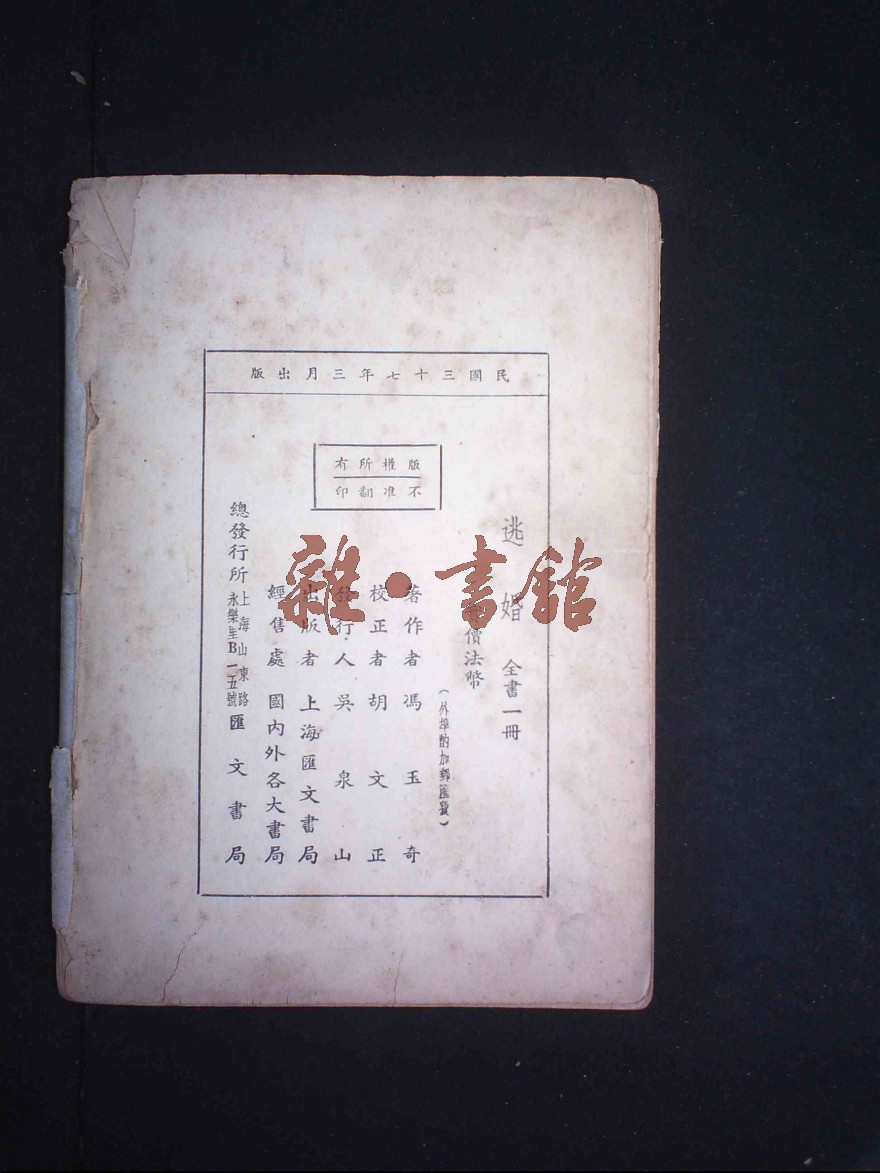 民國三十七年三月出版
版權所有
不准翻印
逃婚 全書一冊
價法幣
(外埠酌加郵匯費)
著作者 馮玉奇
校正者 胡文正
發行人 吳泉山
出版者 上海匯文書局
經售處 國內外各大書局
總發行所 上海山東路永樂里B一五號 匯文書局
雜·書館